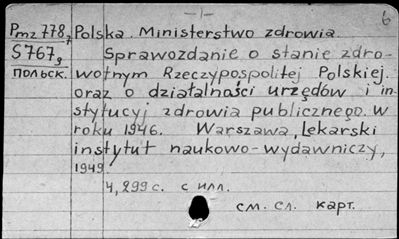 -1-
6
Pmz 778,7 Polska. Ministerstwo zdrowia.
S767,9 Sprawozdanie o stanie zdro-
польск. wotnym Rzeczypospolitej Polskiej.
oraz o działalności urzędów i in-
stytucyj zdrowia publicznego w
roku 1946. Warszawa, Lekarski
instytut naukowo-wydawniczy,
1949.
4, 299 с. с илл.
см. сл. карт.